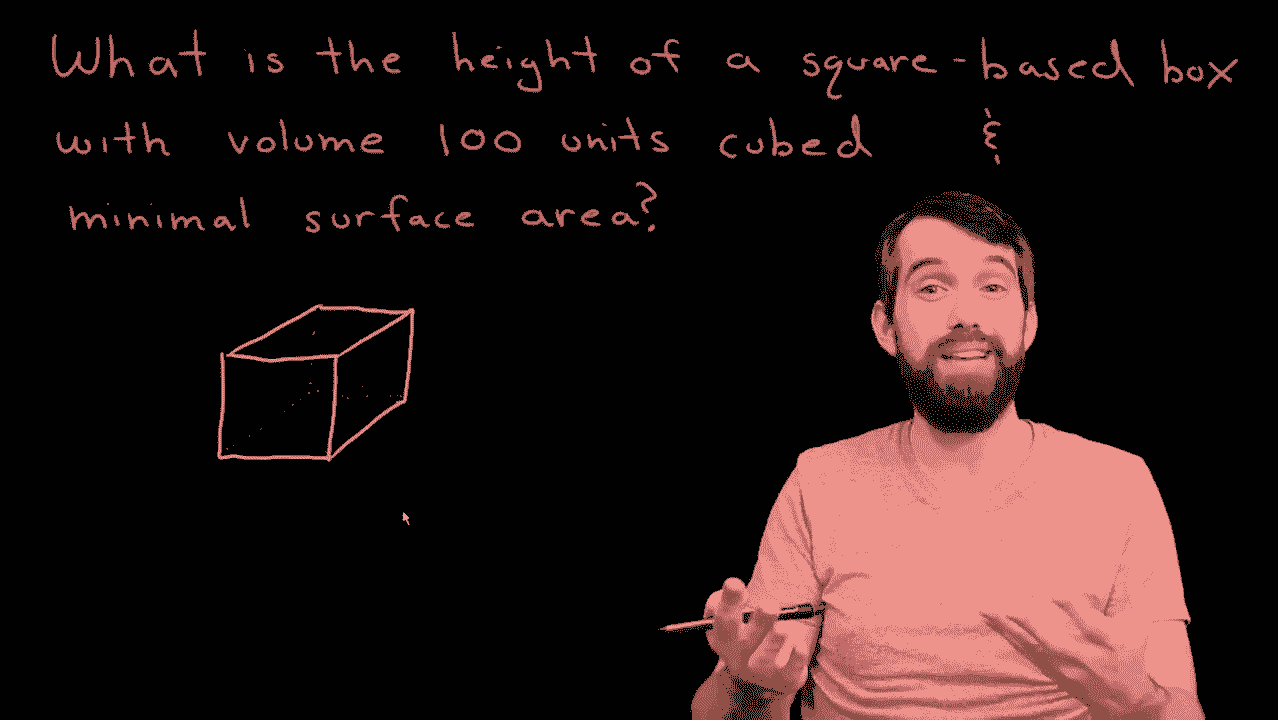 What is the height of a square-based box
with volume 100 units cubed &
minimal surface area?